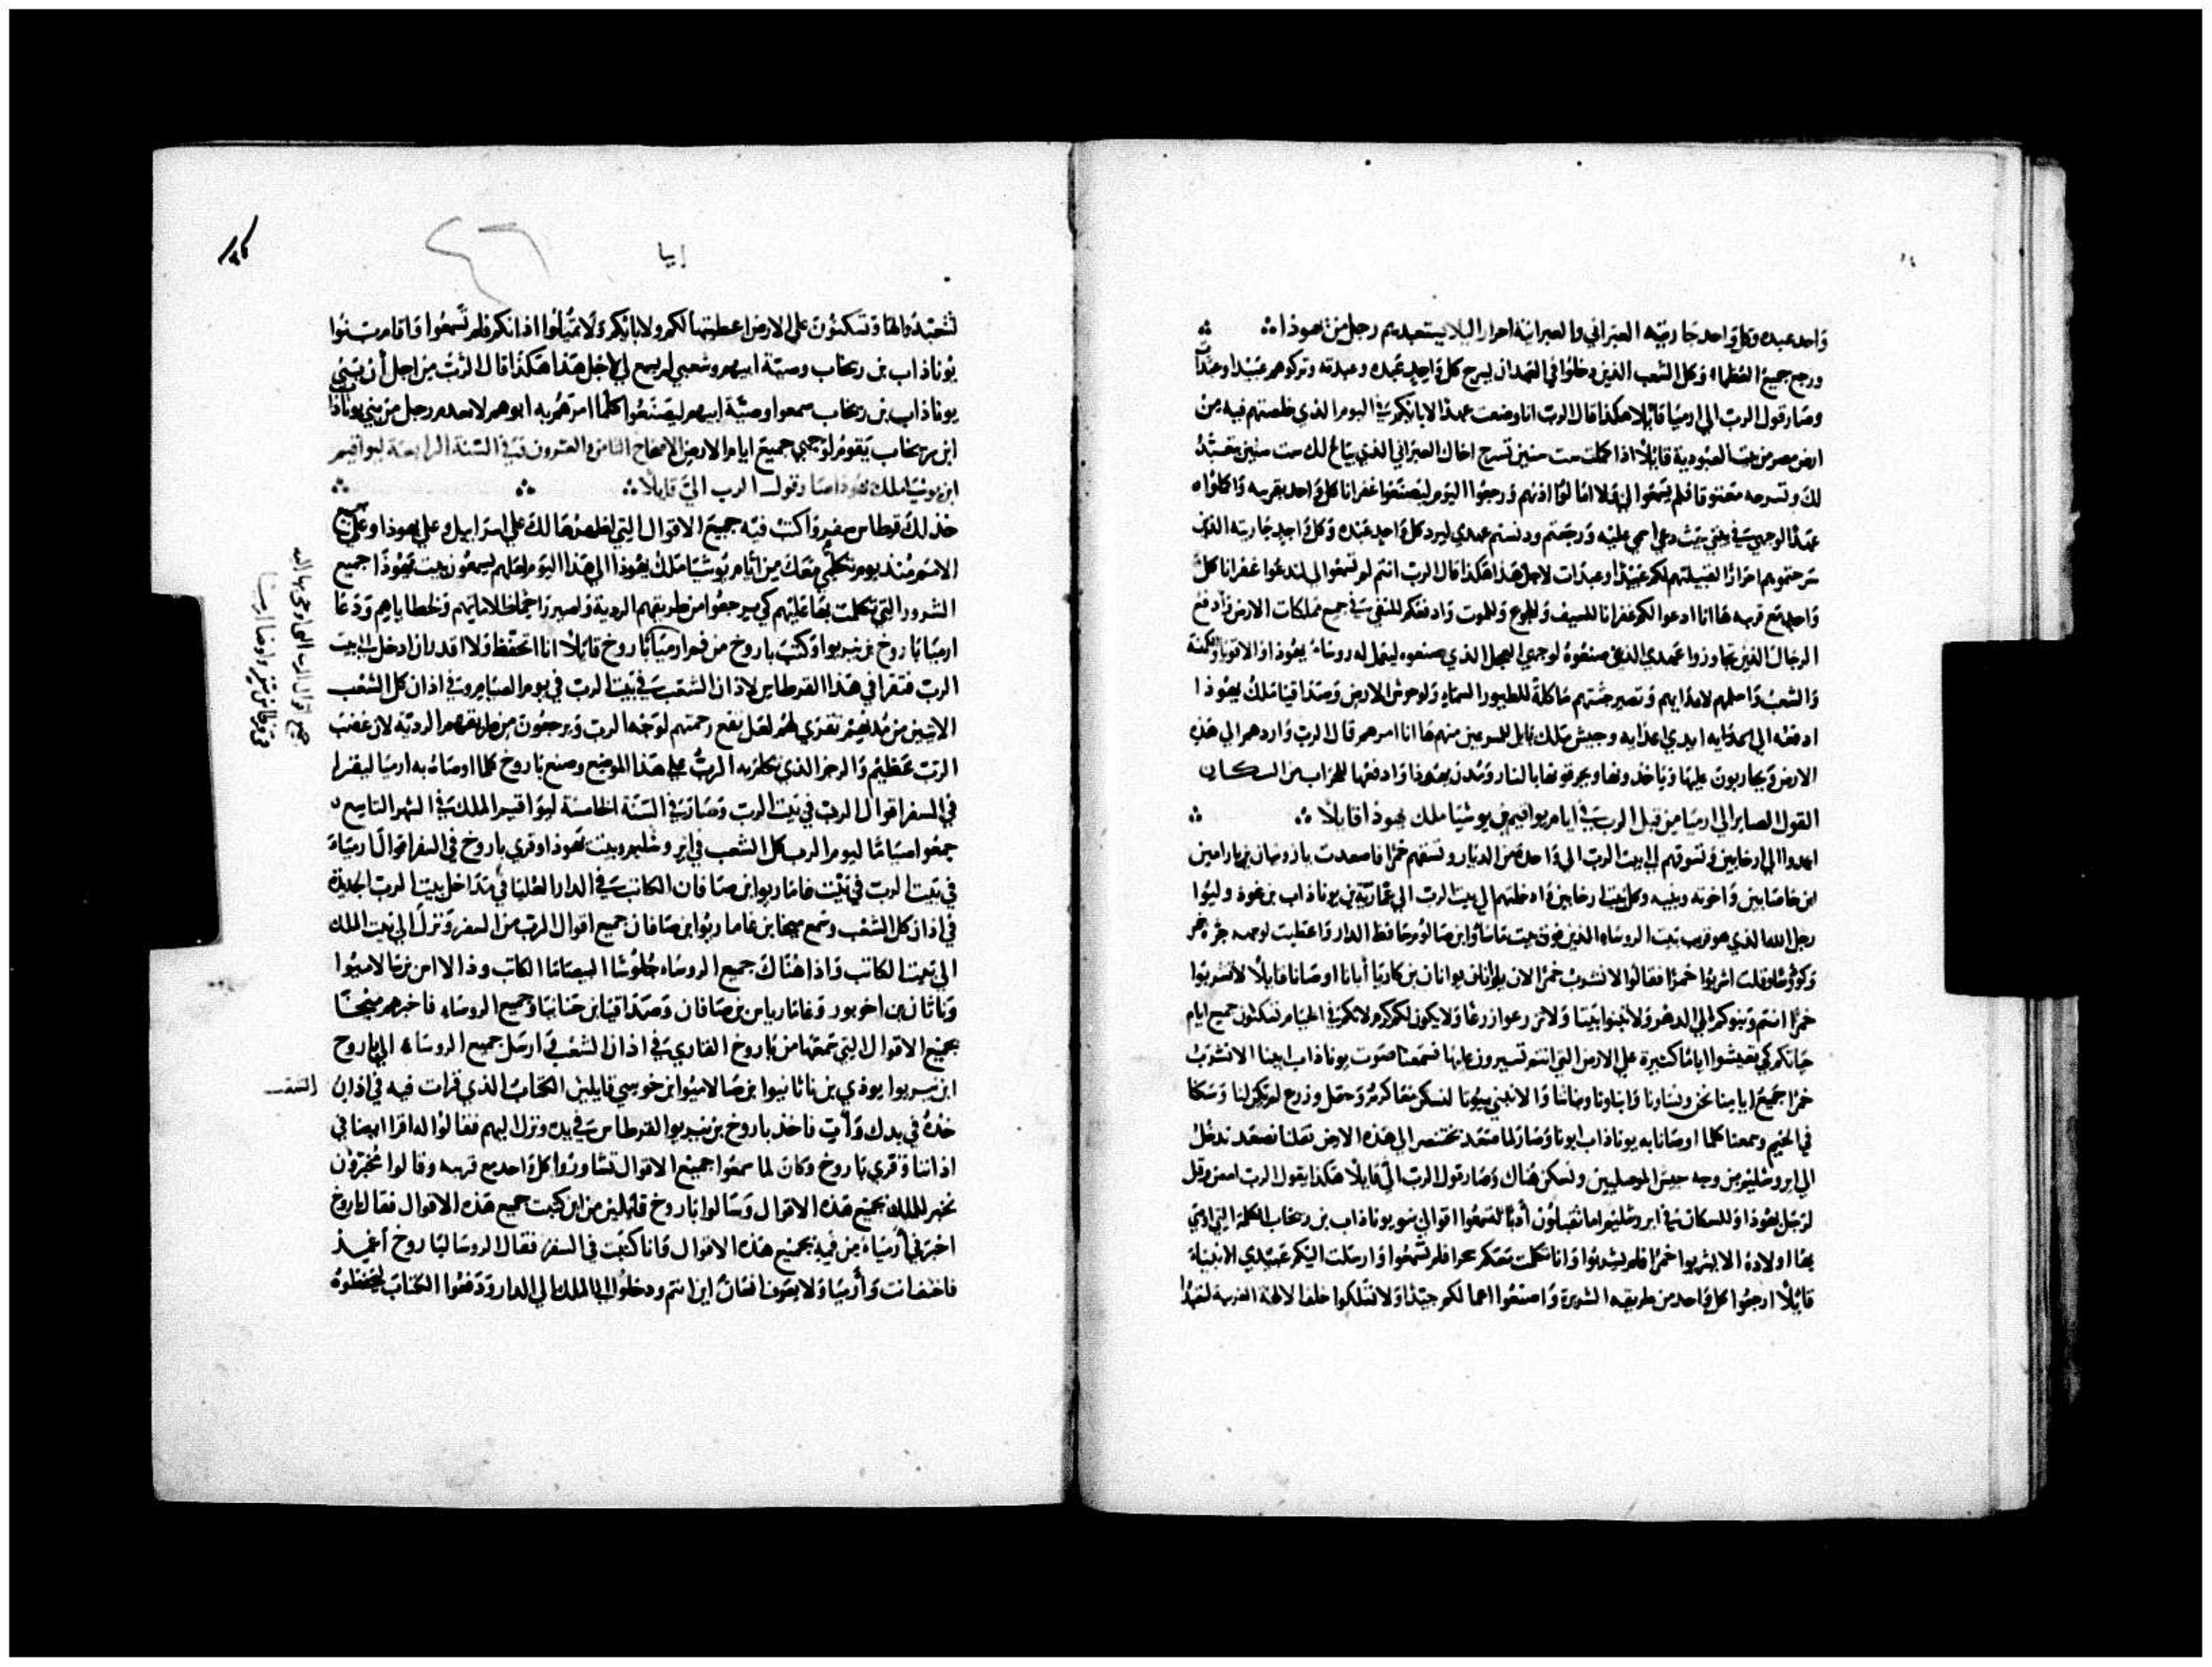 واحد عبده وكل واحد جاريته العبراني والعبرانية احرار ليلا يستعبدهم رجل من يهوذا
ورجع جميع العظما وكل الشعب الذين دخلوا في العهد ان يسرح كل واحد عبده وعبدته وتركوهم عبيدا وعبدات
وصار قول الرب الي ارميا قايلا هكذا قال الرب انا وضعت عهدا لابايكم في اليوم الذي خلصتهم فيه من
ارض مصر من بيت العبودية قايلا اذا كملت ست سنين تسرح اخاك العبراني الذي يباع لك ست سنين يتعبد
لك وتسرحه معتوقا فلم يسمعوا لي ولا امالوا اذنهم ورجعوا اليوم ليصنعوا غفرانا كل واحد بقريبه واكملوا
عهدا لوجهي في بيتي حيث دعي اسمي عليه ورجعتم ودنستم عهدي ليرد كل واحد عبده وكل واحد جاريته الذين
سرحتموهم احرارا لكم عبيدا وعبدات لاجل هذا هكذا قال الرب انتم لم تسمعوا لي لتدعوا غفرانا كل
واحد مع قريبه ها انا ادعوا لكم غفرانا للسيف وللجوع وللموت وادفعكم للنفي في جميع مملكات الارض وادفع
الرجال الذين تجاوزوا عهدي الذي صنعوه لوجهي العجل الذي صنعوه ليعمل له روساء يهوذا والاقويا والكهنة
والشعب واجعلهم لاعدايهم وتصير جثتهم ماكلة للطيور السماء ولوحوش الارض وصداقيا ملك يهوذا
ادفعه الي ايدي اعدايه وجيش ملك بابل للمسرعين منهم ها انا امرهم قال الرب واردهم الي هذه
الارض ويحاربون عليها وياخذونها ويحرقونها بالنار ومدن يهوذا وادفعها للخراب من السكان
القول الصاير الي ارميا من قبل الرب في ايام يواقيم بن يوشيا ملك يهوذا قايلا
الي ارخابين وتسوقهم الي بيت الرب الي واحدة من الديار وتسقهم خمرا فاصعدت
واخوته وبنيه وكل بيت ارخابين وادخلتهم الي بيت الرب
الذي هو قريب بيت الروساء الذين فوق بيت حافظ الدار واعطيت لوجههم جرة خمر
وكووسا وقلت اشربوا خمرا فقالوا لا نشرب خمرا لان ابانا اوصانا قايلا لا تشربوا
خمرا انتم وبنوكم الي الدهر ولا تبنوا بيتا ولا تزرعوا زرعا ولا يكون لكم كرم لانكم في الخيام تسكنون جميع ايام
حياتكم كي تعيشوا اياما كثيرة علي الارض التي انتم تسيرون عليها فسمعنا صوت يوناذاب ابينا الا نشرب
خمرا جميع ايامنا نحن ونساونا وابناونا وبناتنا والا نبني بيوتا لنسكن معا كرم وحقل وزرع لم يكن لنا وسكنا
في الخيم وسمعنا كلما اوصانا به يوناذاب ابونا وصار لما صعد بختنصر الي هذه الارض فقلنا نصعد ندخل
الي ايروشليم من وجه جيش الموصليين ونسكن هناك وصار قول الرب الي قايلا هكذا يقول الرب امض وقل
لرجل يهوذا وللسكان في ايروشليم اما تقبلون ادبا لتسمعوا اقوالي بنو يوناذاب بن رخاب الكلمة التي اوصي
بها اولاده الا يشربوا خمرا فلم يشربوا وانا تكلمت معكم سحرا فلم تسمعوا وارسلت اليكم عبيدي الانبياء
قايلا ارجعوا كل واحد من طريقه الشريرة واصنعوا اعمالكم جيدا ولا تسلكوا خلف الالهة الغريبة لتعبدوا
ارميا
لتتعبدوا لها وتسكنون علي الارض اعطيتها لكم ولابايكم ولا تميلوا اذانكم فلم تسمعوا واقام بنوا
يوناذاب بن رخاب وصية ابيهم وشعبي لم يسمع لي لاجل هذا هكذا قال الرب من اجل ان بني
يوناذاب بن رخاب سمعوا وصية ابيهم ليصنعوا كلما امرهم به ابوهم لا يعدم رجل من بني يوناذاب
ابن رخاب يقوم لوجهي جميع ايام الارض الاصحاح الثامن والعشرون في السنة الرابعة ليواقيم
ابن يوشيا ملك يهوذا صار قول الرب الي قايلا
خذ لك قرطاس سفر واكتب فيه جميع الاقوال التي اظهرتها لك علي اسراييل وعلي يهوذا وعلي جميع
الامم منذ يوم تكلمي معك من ايام يوشيا ملك يهوذا الي هذا اليوم لعلهم يسمعون بيت يهوذا جميع
الشرور التي تكلمت بها عليهم كي يرجعوا من طريقهم الردية ولخطاياهم ودعا
ارميا باروخ بن نيريوا وكتب باروخ من فم ارميا باروخ قايلا انا احتفظ ولا اقدر ان ادخل الي بيت
الرب فتقرا في هذا القرطاس لاذان الشعب في بيت الرب في يوم الصيام وفي اذان كل الشعب
الاتيين من مدنهم تقري لهم لعل يقع رحمتهم لوجه الرب ويرجعون من طريقهم الردية لان غضب
الرب عظيم والرجز الذي تكلم به الرب علي هذا الموضع وصنع باروخ كلما اوصاه به ارميا ليقرا
في السفر اقوال الرب في بيت الرب وصارت في السنة الخامسة ليواقيم الملك في الشهر التاسع
جمعوا صياما ليوم الرب كل الشعب في ايروشليم وبيت يهوذا وقري باروخ في السفر اقوال ارمياء
في بيت الرب في بيت غاماريوا بن صافان الكاتب في الدار العليا في مداخل بيت الرب الجديدة
في اذان كل الشعب وسمع ميخا بن غاماريوا بن صافان جميع اقوال الرب من السفر ونزل الي بيت الملك
الي بيت الكاتب واذا هناك جميع الروساء جلوسا اليصاما الكاتب
وناثان بن اخوبور وغاماريا بن صافان وصداقيا بن حنانيا وجميع الروساء فاخبرهم ميخا
بجميع الاقوال التي سمعها من باروخ القاري في اذان الشعب وارسل جميع الروساء الي باروخ
ابن نيريوا يوذي بن ناثانيوا بن صالاميوا بن خوسي قايلين الكتاب الذي قرات فيه في اذان الشعب
خذه في يدك وات فاخذ باروخ بن نيريوا القرطاس في يده ونزل اليهم فقالوا له اقرا ايضا في
اذاننا وقري باروخ وكان لما سمعوا جميع الاقوال تشاوروا كل واحد مع قريبه وقالوا مخبرون
نخبر للملك بجميع هذه الاقوال وسالوا باروخ قايلين من اين كتبت جميع هذه الاقوال فقال باروخ
اخبرني ارمياء من فيه بجميع هذه الاقوال وانا كتبت في السفر فقال الروسا لباروخ
فاختف انت وارميا ولا يعرف انسان اين انتم ودخلوا الي الملك الي الدار ودفعوا الكتاب ليحفظوه